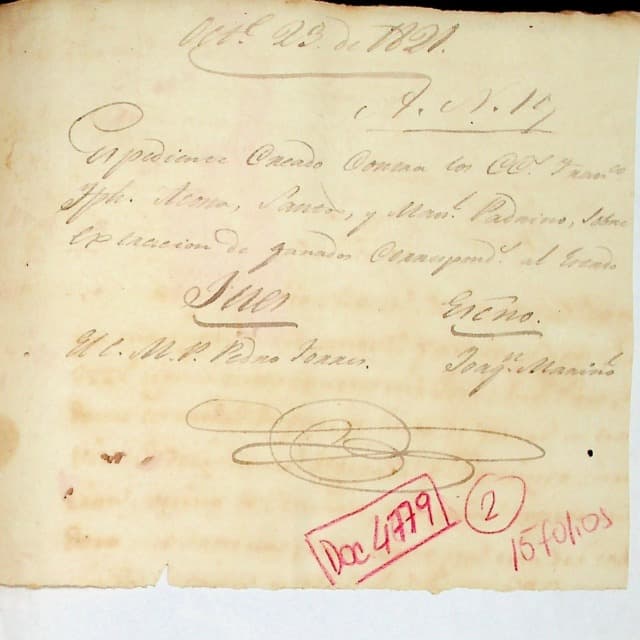 Octe. 23. de 1821.
A. N. 19
Expediente Creado Contra los CC.s Franco
Jph. Acona, Santos, y Manl. Padrino, sobre
extraccion de ganados Correspondts. al Estado
Juez
Escno.
El C. M. P. Pedro Torres.
Joaqn. Mariño
Doc 4779
2
15 folios